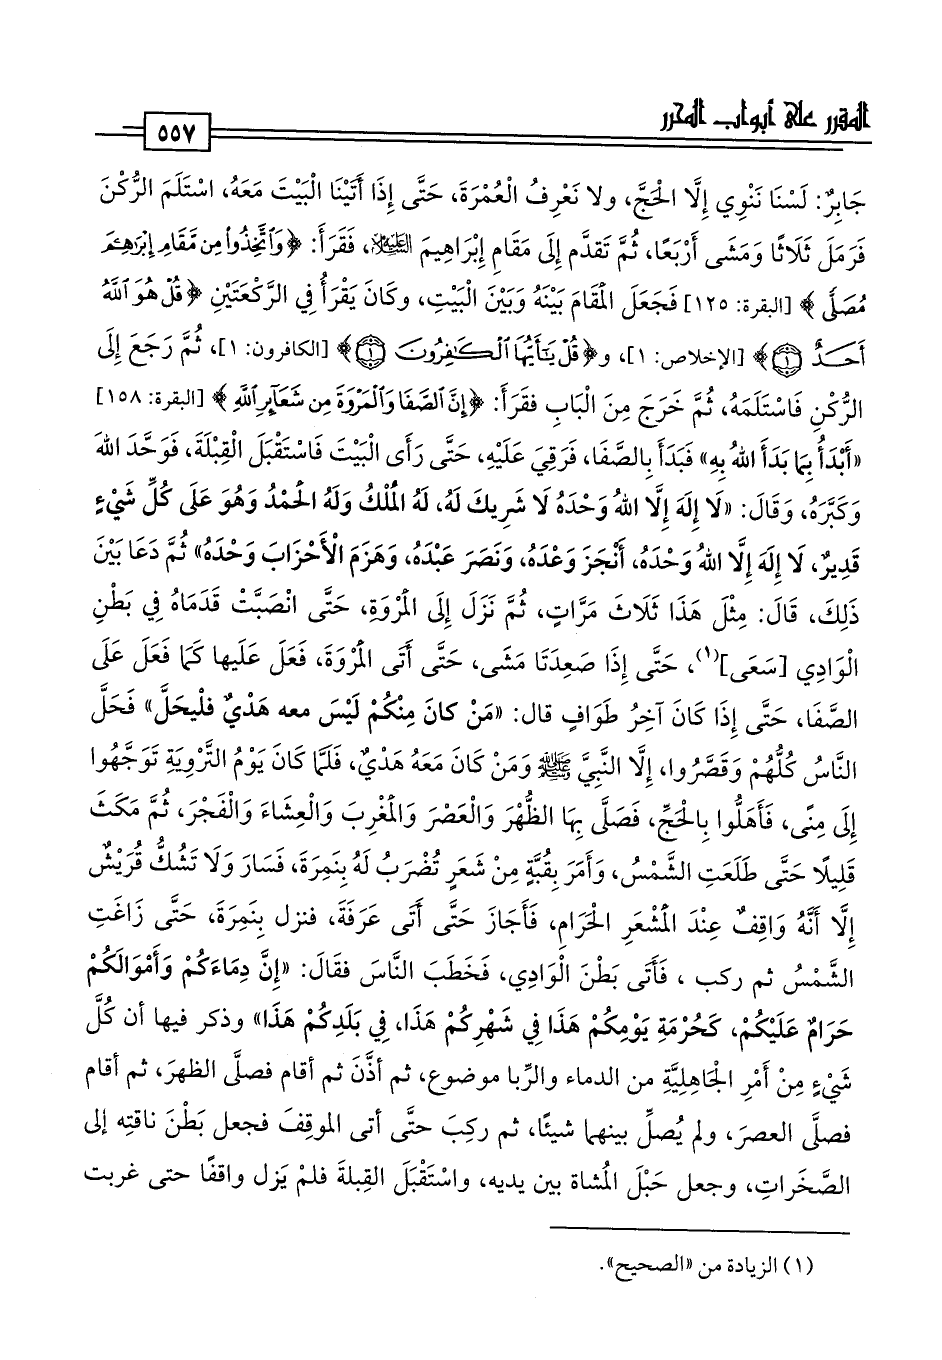 المقرر على أبواب المحرر
٥٥٧
جَابِرٌ: لَسْنَا نَنْوِي إِلَّا الْحَجَّ، ولا نَعْرِفُ الْعُمْرَةَ، حَتَّى إِذَا أَتَيْنَا الْبَيْتَ مَعَهُ، اسْتَلَمَ الرُّكْنَ
فَرَمَلَ ثَلَاثًا وَمَشَى أَرْبَعًا، ثُمَّ تَقدَّم إِلَى مَقامِ إِبْرَاهِيمَ العَلَيْهِ السَّلَام، فَقَرَأَ: ﴿وَٱتَّخِذُواْ مِن مَّقَامِ إِبْرَٰهِـۧمَ
مُصَلًّى﴾ [البقرة: ١٢٥] فَجَعَلَ الْمَقَامَ بَيْنَهُ وَبَيْنَ الْبَيْتِ، وكَانَ يَقْرَأُ فِي الرَّكْعَتَيْنِ ﴿قُلْ هُوَ ٱللَّهُ
أَحَدٌ ۝١﴾ [الإخلاص: ١]، و﴿قُلْ يَٰٓأَيُّهَا ٱلْكَٰفِرُونَ ۝١﴾ [الكافرون: ١]، ثُمَّ رَجَعَ إِلَى
الرُّكْنِ فَاسْتَلَمَهُ، ثُمَّ خَرَجَ مِنَ الْبَابِ فقَرَأَ: ﴿إِنَّ ٱلصَّفَا وَٱلْمَرْوَةَ مِن شَعَآئِرِ ٱللَّهِ﴾ [البقرة: ١٥٨]
«أَبْدَأُ بِمَا بَدَأَ اللهُ بِهِ» فَبَدَأَ بِالصَّفَا، فَرَقِيَ عَلَيْهِ، حَتَّى رَأَى الْبَيْتَ فَاسْتَقْبَلَ الْقِبْلَةَ، فَوَحَّدَ اللهَ
وَكَبَّرَهُ، وَقَالَ: «لَا إِلَهَ إِلَّا اللهُ وَحْدَهُ لَا شَرِيكَ لَهُ، لَهُ الْمُلْكُ وَلَهُ الْحَمْدُ وَهُوَ عَلَى كُلِّ شَيْءٍ
قَدِيرٌ، لَا إِلَهَ إِلَّا اللهُ وَحْدَهُ، أَنْجَزَ وَعْدَهُ، وَنَصَرَ عَبْدَهُ، وَهَزَمَ الْأَحْزَابَ وَحْدَهُ» ثُمَّ دَعَا بَيْنَ
ذَلِكَ، قَالَ: مِثْلَ هَذَا ثَلَاثَ مَرَّاتٍ، ثُمَّ نَزَلَ إِلَى الْمَرْوَةِ، حَتَّى انْصَبَّتْ قَدَمَاهُ فِي بَطْنِ
الْوَادِي [سَعَى](١)، حَتَّى إِذَا صَعِدَتَا مَشَى، حَتَّى أَتَى الْمَرْوَةَ، فَعَلَ عَلَيها كَمَا فَعَلَ عَلَى
الصَّفَا، حَتَّى إِذَا كَانَ آخِرُ طَوَافٍ قال: «مَنْ كانَ مِنْكُمْ لَيْسَ معه هَدْيٌ فليْحَلَّ» فَحَلَّ
النَّاسُ كُلُّهُمْ وَقَصَّرُوا، إِلَّا النَّبِيَّ ﷺ وَمَنْ كَانَ مَعَهُ هَدْيٌ، فَلَمَّا كَانَ يَوْمُ التَّرْوِيَةِ تَوَجَّهُوا
إِلَى مِنًى، فَأَهَلُّوا بِالْحَجِّ، فَصَلَّى بِهَا الظُّهْرَ وَالْعَصْرَ وَالْمَغْرِبَ وَالْعِشَاءَ وَالْفَجْرَ، ثُمَّ مَكَثَ
قَلِيلًا حَتَّى طَلَعَتِ الشَّمْسُ، وَأَمَرَ بِقُبَّةٍ مِنْ شَعَرٍ تُضْرَبُ لَهُ بِنَمِرَةَ، فَسَارَ وَلَا تَشُكُّ قُرَيْشٌ
إِلَّا أَنَّهُ وَاقِفٌ عِنْدَ الْمَشْعَرِ الْحَرَامِ، فَأَجَازَ حَتَّى أَتَى عَرَفَةَ، فنزل بِنَمِرَةَ، حَتَّى زَاغَتِ
الشَّمْسُ ثم ركب ، فَأَتَى بَطْنَ الْوَادِي، فَخَطَبَ النَّاسَ فقَالَ: «إِنَّ دِمَاءَكُمْ وَأَمْوَالَكُمْ
حَرَامٌ عَلَيْكُمْ، كَحُرْمَةِ يَوْمِكُمْ هَذَا فِي شَهْرِكُمْ هَذَا، فِي بَلَدِكُمْ هَذَا» وذكر فيها أن كُلَّ
شَيْءٍ مِنْ أَمْرِ الْجَاهِلِيَّةِ من الدماء والرِّبا موضوع، ثم أذَّنَ ثم أقام فصلَّى الظهرَ، ثم أقام
فصلَّى العصرَ، ولم يُصلِّ بينهما شيئًا، ثم ركِبَ حتَّى أتى الموقِفَ فجعل بَطْنَ ناقتِه إلى
الصَّخَراتِ، وجعل حَبْلَ الْمُشاة بين يديه، واسْتَقْبَلَ القِبلةَ فلمْ يَزل واقفًا حتى غربت
(١) الزيادة من «الصحيح».